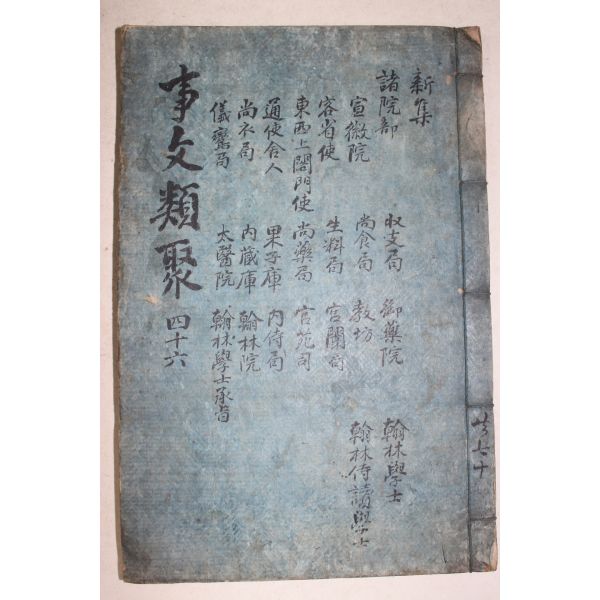 新集
諸院部 収支局 御藥院 翰林學士
宣徽院 尚食局 教坊 翰林侍讀學士
客省使 生料局 宮闈局
東西上閤門使 尚藥局 宮苑司
通使舍人 果子庫 內侍局
尚衣局 內藏庫 翰林院
儀鸞局 太醫院 翰林學士承旨
事文類聚 四十六
共七十